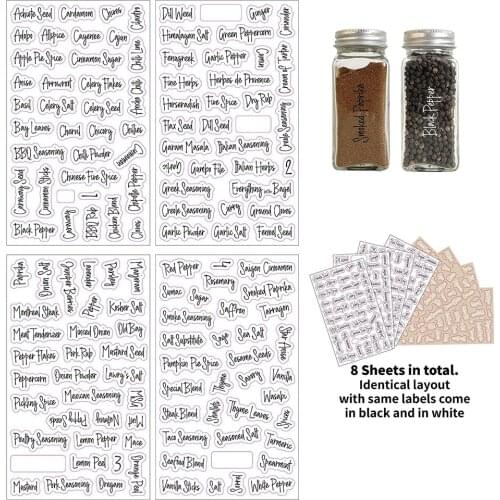 Achiote Seed Cardamom Chives
Adobo Allspice Cayenne Cajun
Apple Pie Spice Cinnamon
Chili Lime
Cilantro
Anise Arrowroot Celery Flakes
Basil Celery Salt Celery Seed
Ancho Chili
Bay Leaves Chervil Chicory Chilies
BBQ Seasoning Chili Powder
Cinnamon
Caraway Seed
Cinnamon Sticks
Chinese Five Spice
Caraway
BBQ Rub
1
Chicken Blend
Chipotle Pepper
Cloves
Black Pepper
Dill Weed Ginger
Coriander
Himalayan Salt Onion Powder
Fenugreek Garlic Pepper
Cream of Tartar
Fine Herbs Herbes de Provence
Horseradish Fine Spice Dry Rub
Flax Seed Dill Seed
Creole Seasoning
Garam Masala Italian Seasoning
Garlic Gumbo File Italian Herbs 2
Greek Seasoning Everything but the Bagel
Creole Seasoning Curry Ground Cloves
Garlic Powder Garlic Salt Fennel Seed
Smoked Paprika
Black Pepper
Paprika
Onion Salt
Marjoram
Montreal Steak Kosher Salt
Meat Tenderizer Minced Onion Old Bay
Pepper Flakes Pork Rub Mustard Seed
Peppercorn Onion Powder Lawry's Salt
Pickling Spice Mexican Seasoning
Nutmeg
Poultry Seasoning Lemon Pepper Mace
Lemon Peel 3
Orange Peel
Mustard Pink Salt Parsley Oregano
Red Pepper 4 Saigon Cinnamon
Rosemary
Sumac Sugar Smoked Paprika
Smoke Seasoning Saffron Tarragon
Salt Substitute Sage Sea Salt
Sesame Seeds
Pumpkin Pie Spice
Special Blend Savory Vanilla
Thyme
Steak Blend Thyme Leaves Wasabi
Spices
Taco Seasoning Seasoned Salt
Turmeric
Seafood Blend Spearmint
Vanilla Sticks Salt White Pepper
8 Sheets in total.
Identical layout
with same labels come
in black and in white